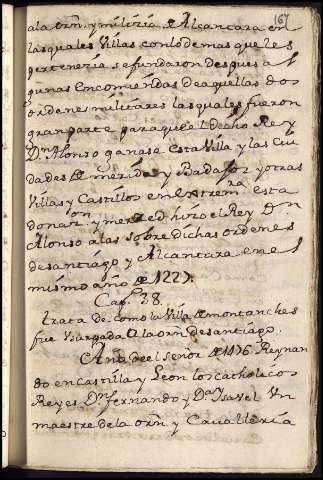 167
a la orn. y milizia de Alcantara en
las quales Villas con lo demas que les
pertenezia se fundaron despues al
gunas Encomiendas de aquellas dos
ordenes militares las quales fueron
gran parte para que el dcho Rey
Dn Alonso ganase esta Villa y las Ciu
dades de merida y Badajoz y otras
Villas y Castillos en Extremra. esta
donazon. y merced hizo el Rey Dn
Alonso a las sobre dichas ordenes
de santiago y Alcantara en el
mismo año de 1227.
Capo. 38.
trata de como la Villa de montanches
fue usurpada a la orn de santiago.
Año de el señor de 1476 Reynan
do en Castilla y Leon los Catholicos
Reyes Dn fernando y Da Isavel Un
maestre de la orn. y Cavalleria